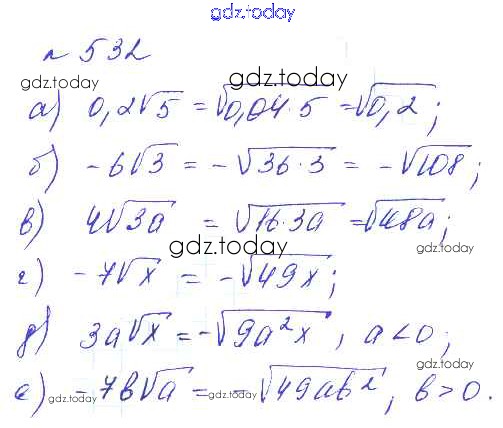 gdz.today
№ 532
gdz.today
gdz.today
а) 0,2√5 = √0,04·5 = √0,2;
б) -6√3 = -√36·3 = -√108;
в) 4√3a = √16·3a = √48a;
gdz.today
gdz.today
г) -7√x = -√49x;
д) 3a√x = -√9a²x, a<0;
gdz.today
е) -7b√a = -√49ab², b>0.
gdz.today
gdz.today